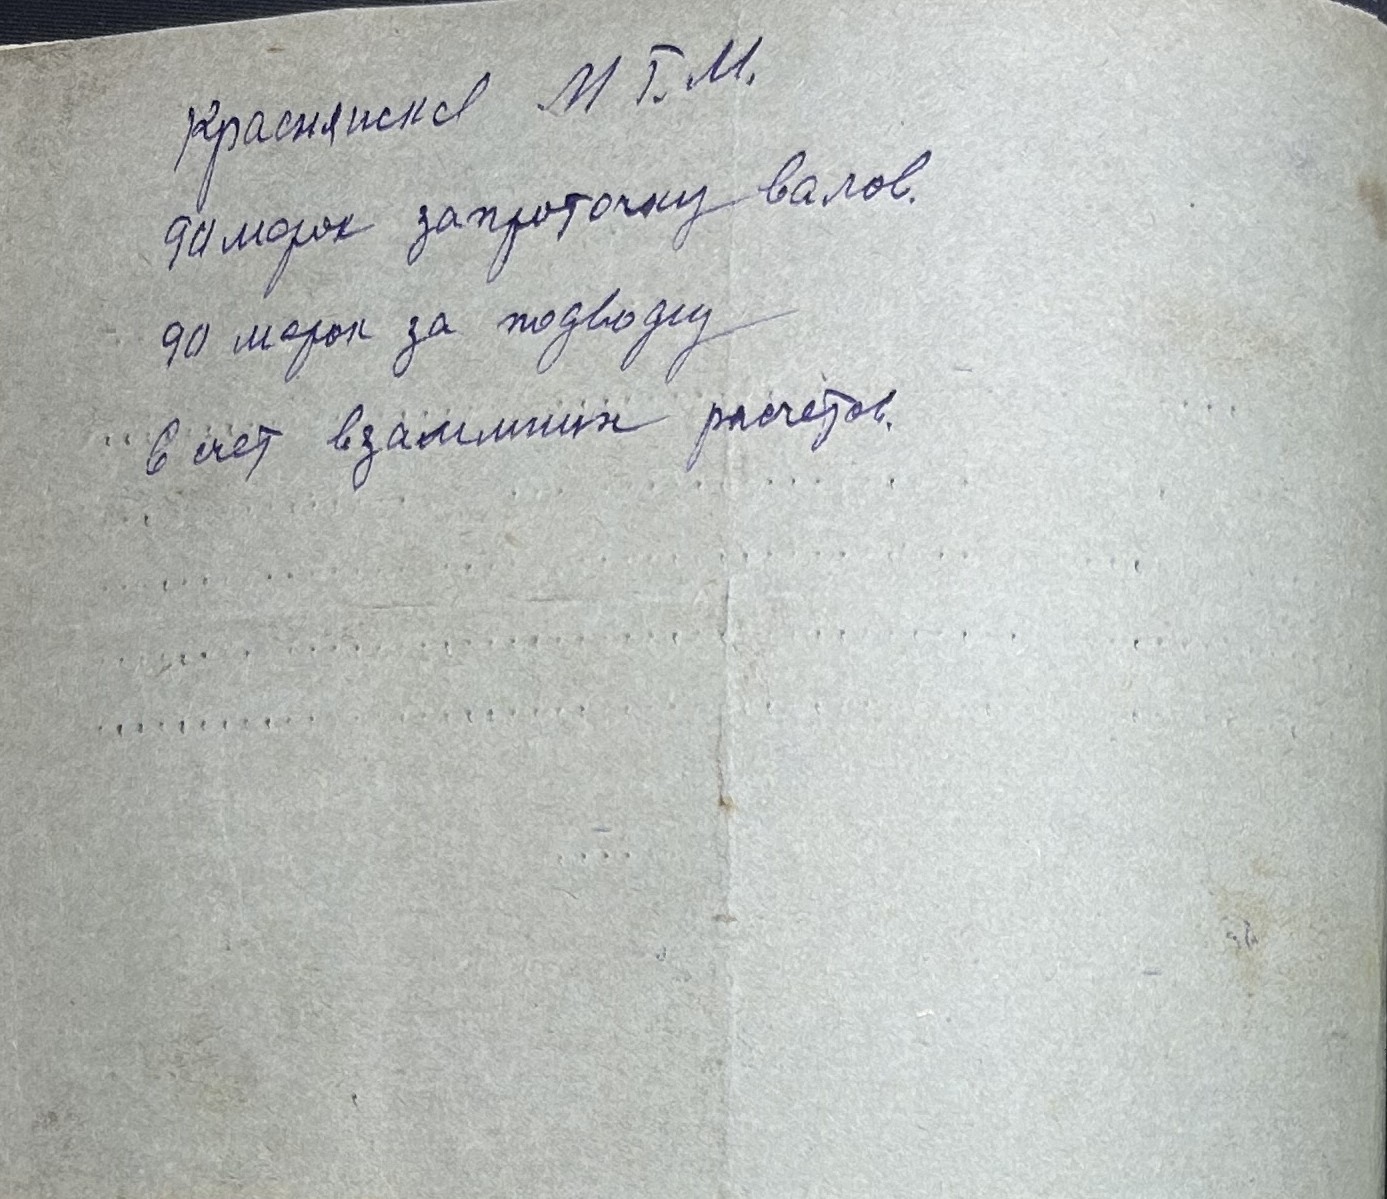 Краснянска М Г.М.
90 марок за проточку валов.
90 марок за подводу
в счет взаимных расчетов.